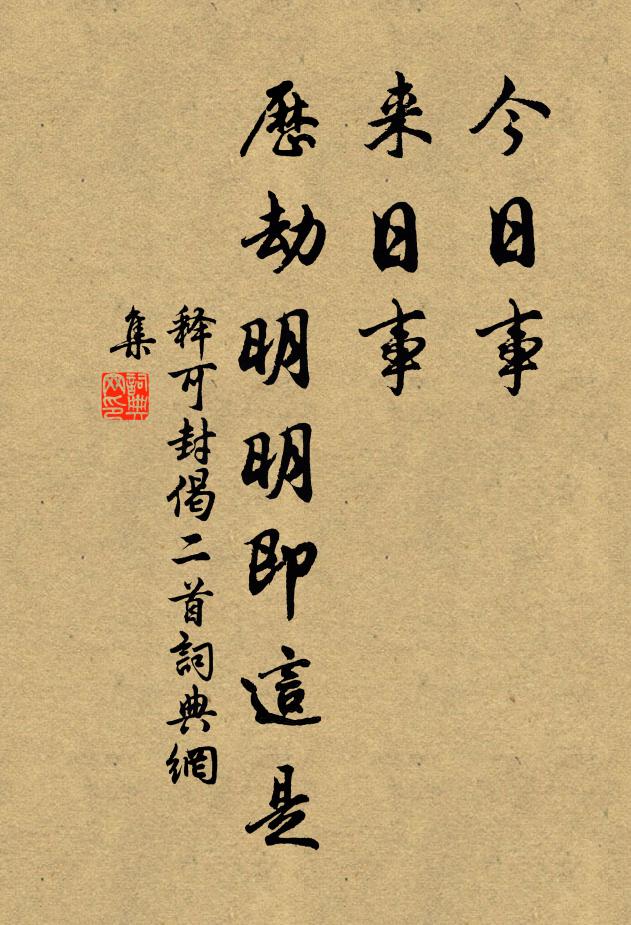 今日事
来日事
歷劫明明即這是
释可封偈二首詞典網
集
詞典网印